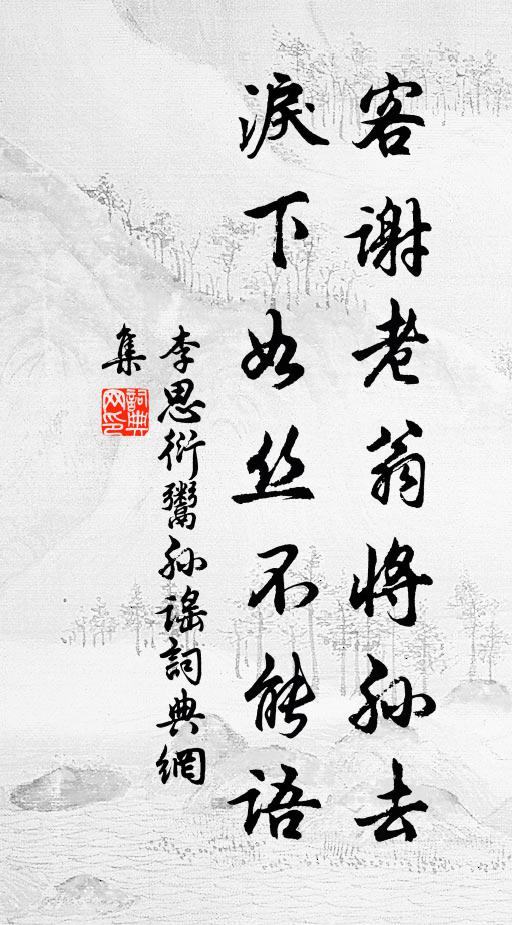 客谢老翁将孙去
淚下如丝不能语
李思衍鬻孙谣詞典網
集
詞典
网印